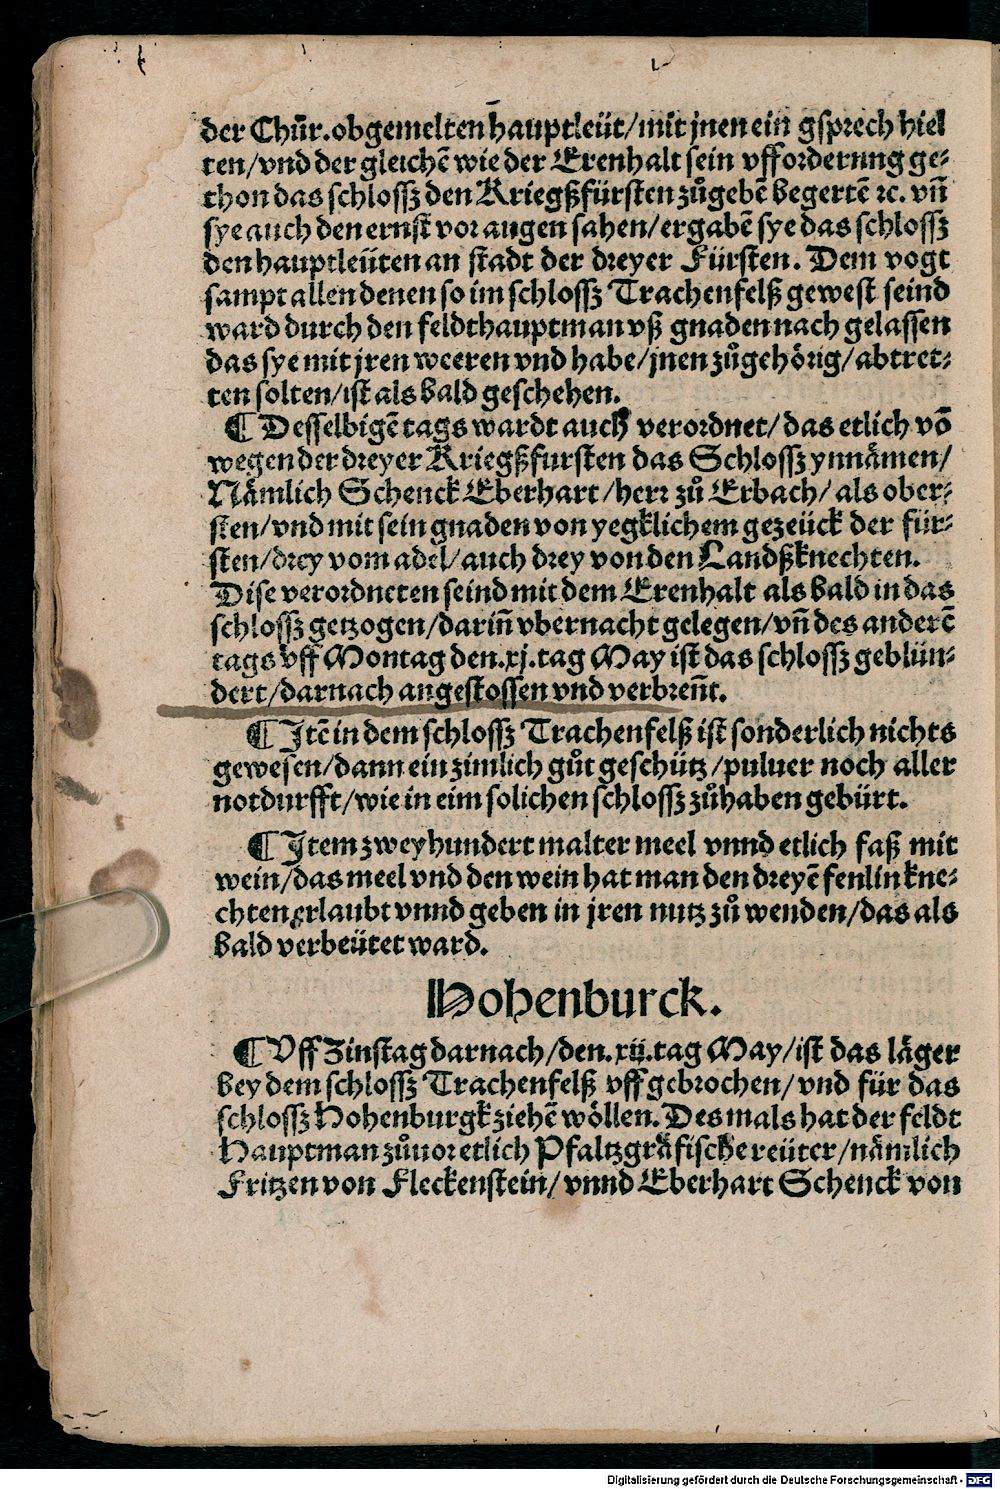 der Chür. obgemelten hauptleüt/ mit jnen ein gsprech hiel
ten/ vnd der gleichē wie der Erenhalt sein vffforderung ge⸗
thon das schlossz den Kriegßfürsten zůgebē begertē ꝛc. vñ
sye auch den ernst vor augen sahen/ ergabē sye das schlossz
den hauptleüten an stadt der dreyer Fürsten. Dem vogt
sampt allen denen so im schlossz Trachenfelß gewest seind
ward durch den feldthauptman vß gnaden nach gelassen
das sye mit jren weeren vnd habe/ jnen zůgehörig/ abtret⸗
ten solten/ ist als bald geschehen.
¶ Desselbigē tags wardt auch verordnet/ das etlich vō
wegen der dreyer Kriegßfursten das Schlossz ynnämen/
Nämlich Schenck Eberhart/ herr zů Erbach/ als ober⸗
sten/ vnd mit sein gnaden von yegklichem gezeück der für⸗
sten/ drey vom adel/ auch drey von den Landßknechten.
Dise verordneten seind mit dem Erenhalt als bald in das
schlossz getzogen/ dariñ vbernacht gelegen/ vñ des anderē
tags vff Montag den .xj. tag May ist das schlossz geblün⸗
dert/ darnach angestossen vnd verbreñt.
¶ Jtē in dem schlossz Trachenfelß ist sonderlich nichts
gewesen/ dann ein zimlich gůt geschütz/ puluer noch aller
notdurfft/ wie in eim solichen schlossz zůhaben gebürt.
¶ Jtem zweyhundert malter meel vnnd etlich faß mit
wein/ das meel vnd den wein hat man den dreyē fenlin kne⸗
chten erlaubt vnnd geben in jren nutz zů wenden/ das als
bald verbeütet ward.
Hohenburck.
¶ Vff Zinstag darnach/ den .xij. tag May/ ist das läger
bey dem schlossz Trachenfelß vff gebrochen/ vnd für das
schlossz Hohenburgk ziehē wöllen. Desmals hat der feldt
Hauptman zůuor etlich Pfaltzgräfische reüter/ nämlich
Fritzen von Fleckenstein/ vnnd Eberhart Schenck von
Digitalisierung gefördert durch die Deutsche Forschungsgemeinschaft - DFG